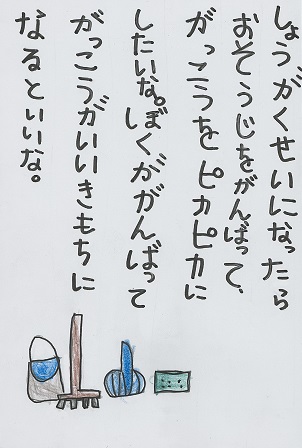 しょうがくせいになったら
おそうじをがんばって、
がっこうをピカピカに
したいな。ぼくががんばって
がっこうがいいきもちに
なるといいな。